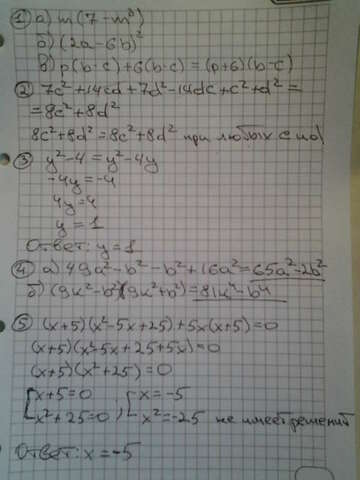 ① а) m(7-m⁸)
б) (2a-6b)²
в) p(b-c)+6(b-c)=(p+6)(b-c)
② 7c²+14cd+7d²-14dc+c²+d²=
=8c²+8d²
8c²+8d²=8c²+8d² при любых c и d
③ y²-4=y²-4y
-4y=-4
4y=4
y=1
Ответ: y=1
④ а) 49a²-b²-b²+16a²=65a²-2b²
б) (9k²-b²)(9k²+b²)=81k⁴-b4
⑤ (x+5)(x²-5x+25)+5x(x+5)=0
(x+5)(x²-5x+25+5x)=0
(x+5)(x²+25)=0
[x+5=0 [x=-5
[x²+25=0, [x²=-25 не имеет решений
Ответ: x=-5